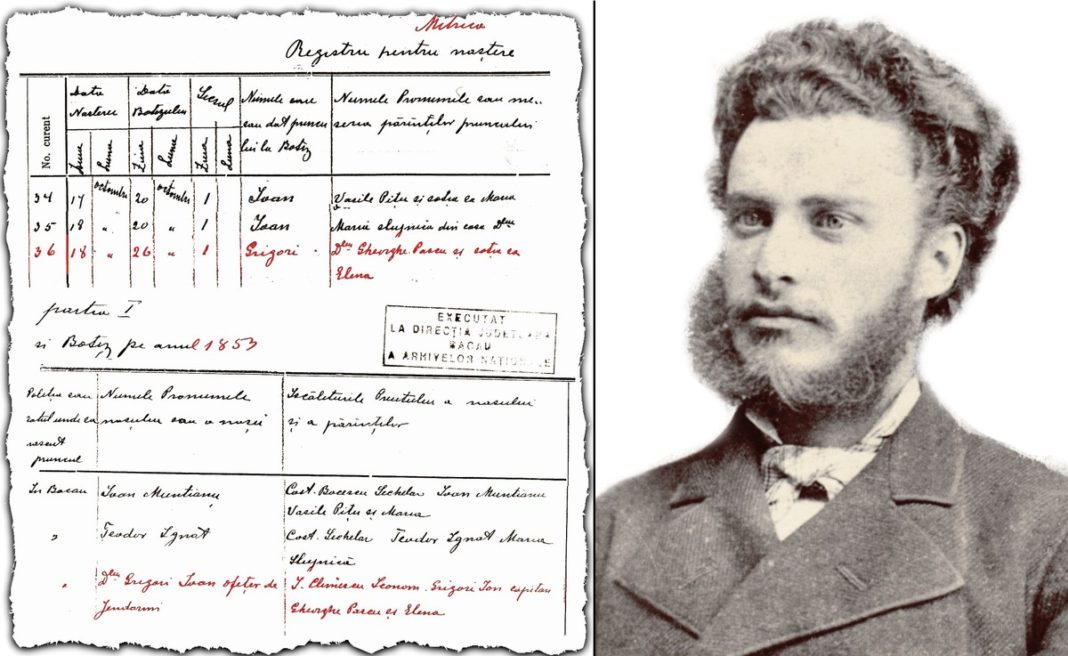 Mitrica
Registru pentru naștere
No. curent
Data Nasterei
Data Botezului
Secsul
Numele care sau dat pruncului la Botez
Numele Pronumele sau meseria părintilor pruncului
Ziua
Luna
Ziua
Luna
34 17 octombri 20 octombri 1 Ioan Vasile Pitu si sotia ea Maria
35 18 " 20 " 1 Ioan Maria slujnica din casa Dlui
36 18 " 26 " 1 Grigori Dlui Gheorghe Pascu și soția ea
Elena
partea I
si Botez pe anul 1853
EXECUTAT
LA DIRECȚIA JUDEȚEANĂ
BACAU
A ARHIVELOR NAȚIONALE
Politia sau satul unde ea nascut pruncul
Numele Pronumele nașului sau a nașei
Iscăliturile Preutului a nasului și a părinților
In Bacau Ioan Muntianu Cost. Bocescu Sechelar Ioan Muntianu
Vasile Pițu si Maria
" Teodor Ignat Cost. Sechelar Teodor Ignat Maria
Slujnică
" Dlui Grigori Ioan ofițer de I. Climescu Iconom. Grigori Ion capitan
Jendarmi Gheorghe Pascu și Elena